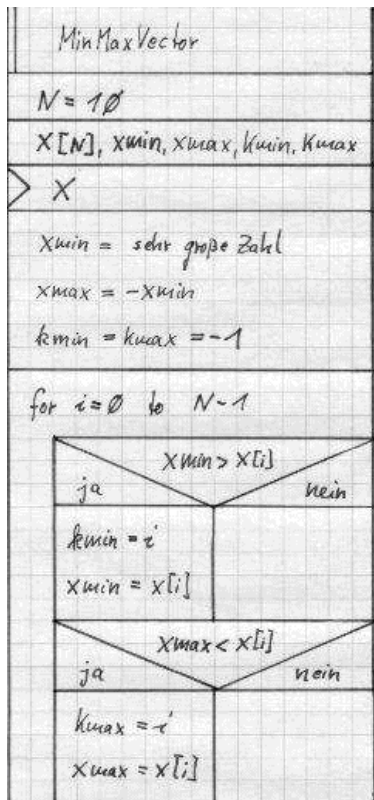 MinMaxVector
N = 10
X[N], xmin, xmax, kmin, kmax
X
xmin = sehr große Zahl
xmax = -xmin
kmin = kmax = -1
for i=0 to N-1
xmin > x[i]
ja nein
kmin = i
xmin = x[i]
xmax < x[i]
ja nein
kmax = i
xmax = x[i]